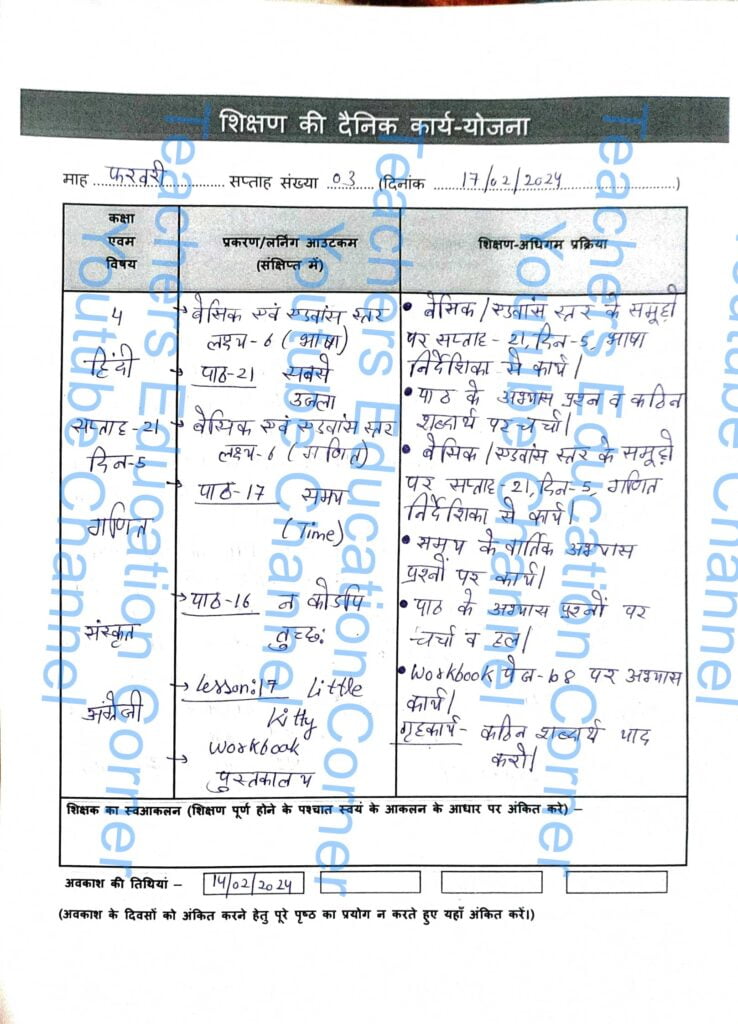 शिक्षण की दैनिक कार्य-योजना
माह फरवरी सप्ताह संख्या 03 (दिनांक 17/02/2024)
कक्षा
एवम
विषय
प्रकरण/लर्निंग आउटकम
(संक्षिप्त में)
शिक्षण-अधिगम प्रक्रिया
4
हिंदी
सप्ताह-21
दिन-5
गणित
संस्कृत
अंग्रेजी
→ बेसिक एवं एडवांस स्तर
लक्ष्य-6 (भाषा)
→ पाठ-21 सबसे
उजला
→ बेसिक एवं एडवांस स्तर
लक्ष्य-6 (गणित)
→ पाठ-17 समय
(Time)
→ पाठ-16 न कोडपि
तुच्छः
→ Lesson:17 Little
Kitty
Workbook
→ पुस्तकालय
• बेसिक/एडवांस स्तर के समूहो
पर सप्ताह-21, दिन-5, भाषा
निर्देशिका से कार्य।
• पाठ के अभ्यास प्रश्न व कठिन
शब्दार्थ पर चर्चा।
• बेसिक/एडवांस स्तर के समूहो
पर सप्ताह-21, दिन-5, गणित
निर्देशिका से कार्य।
• समय के वार्तिक अभ्यास
प्रश्नों पर कार्य।
• पाठ के अभ्यास प्रश्नों पर
चर्चा व हल।
• Workbook पेज-68 पर अभ्यास
कार्य।
गृहकार्य- कठिन शब्दार्थ याद
करो।
शिक्षक का स्वआकलन (शिक्षण पूर्ण होने के पश्चात स्वयं के आकलन के आधार पर अंकित करे) –
अवकाश की तिथियां – 14/02/2024
(अवकाश के दिवसों को अंकित करने हेतु पूरे पृष्ठ का प्रयोग न करते हुए यहाँ अंकित करें।)
Teachers Education Corner
Youtube Channel
Teachers Education Corner
Youtube Channel
Teachers Education Corner
Youtube Channel
Teachers Education Corner
Youtube Channel